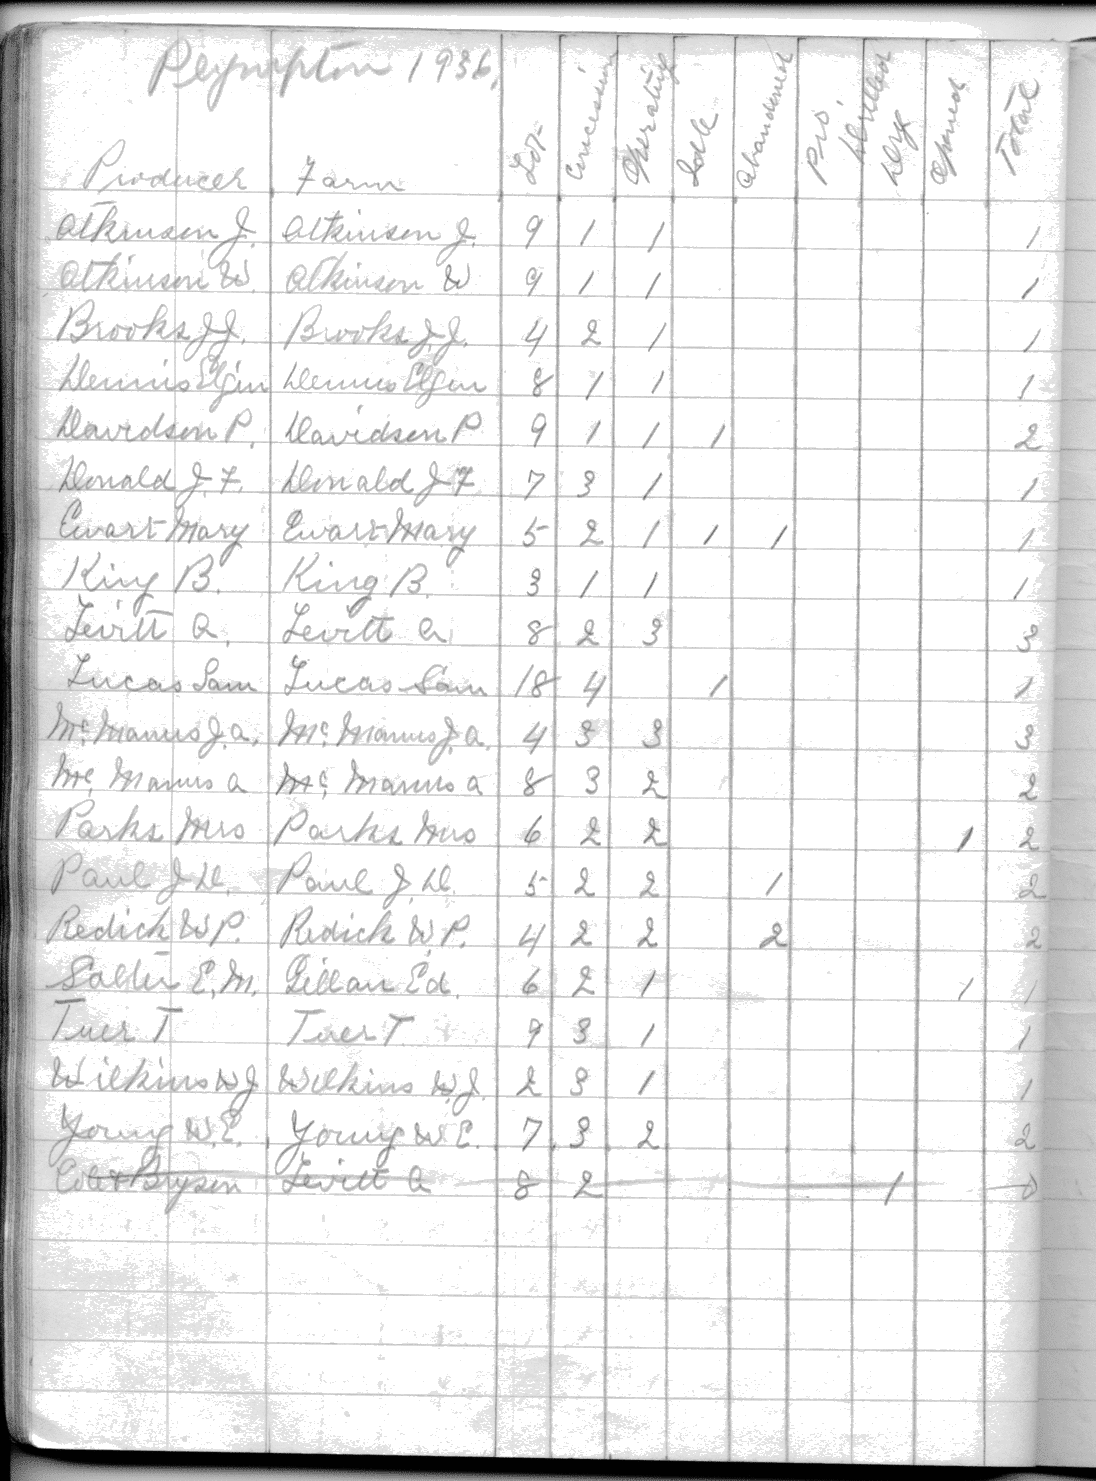 Plympton 1936.
Producer Farm Lot Concession Operating Idle Abandoned Pro. Drilled Dry Opened Total
Atkinson J. Atkinson J. 9 1 1 1
Atkinson W. Atkinson W 9 1 1 1
Brooks J.J. Brooks J.J. 4 2 1 1
Dennis Elgin Dennis Elgin 8 1 1 1
Davidson P. Davidson P 9 1 1 1 2
Donald J.F. Donald J F 7 3 1 1
Ewart Mary Ewart Mary 5 2 1 1 1 1
King B. King B. 3 1 1 1
Levitt A. Levitt A. 8 2 3 3
Lucas Sam Lucas Sam 18 4 1 1
Mc.Manus J.A. Mc.Manus J.A. 4 3 3 3
Mc.Manus A Mc.Manus A 8 3 2 2
Parks Mrs Parks Mrs 6 2 2 1 2
Paul J D. Paul J. D. 5 2 2 1 2
Redick W P. Redick W.P. 4 2 2 2 2
Salter E.M. Gillan Ed. 6 2 1 1 1
Tuer T Tuer T 9 3 1 1
Wilkins W J Wilkins W.J. 2 3 1 1
Young W.E. Young W E. 7. 3 2 2
Bryson Levitt A 8 2 1